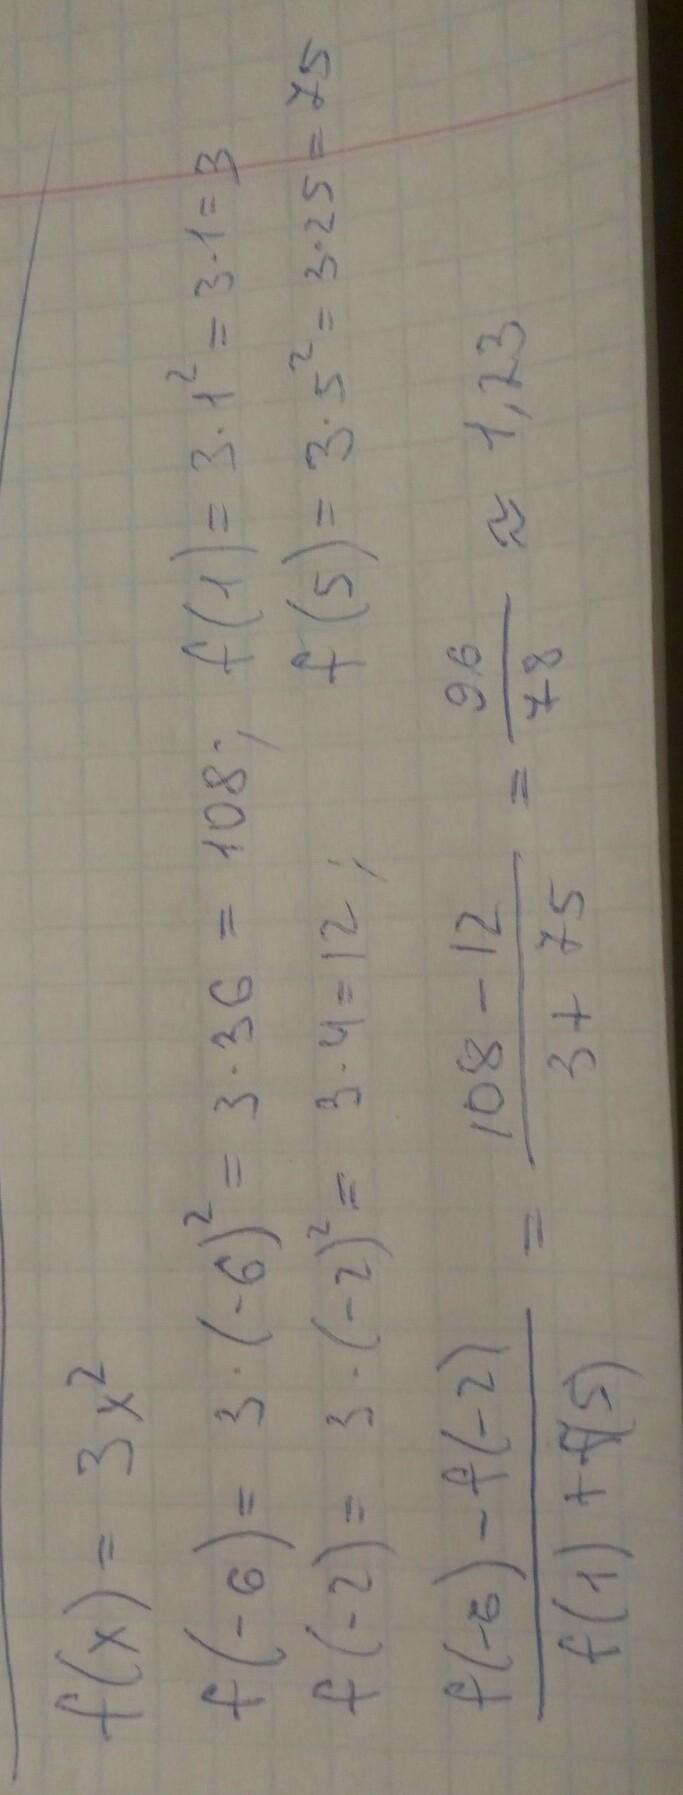 f(x) = 3x²
f(-6) = 3·(-6)² = 3·36 = 108; f(1) = 3·1² = 3·1 = 3
f(-2) = 3·(-2)² = 3·4 = 12; f(5) = 3·5² = 3·25 = 75
f(-6) - f(-2) / f(1) + f(5) = 108 - 12 / 3 + 75 = 96 / 78 ≈ 1,23